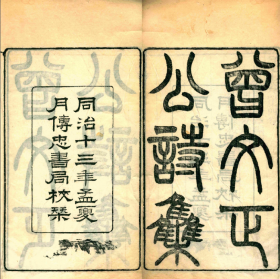 曾文正
公詩集
同治十三年孟夏
月傳忠書局校栞